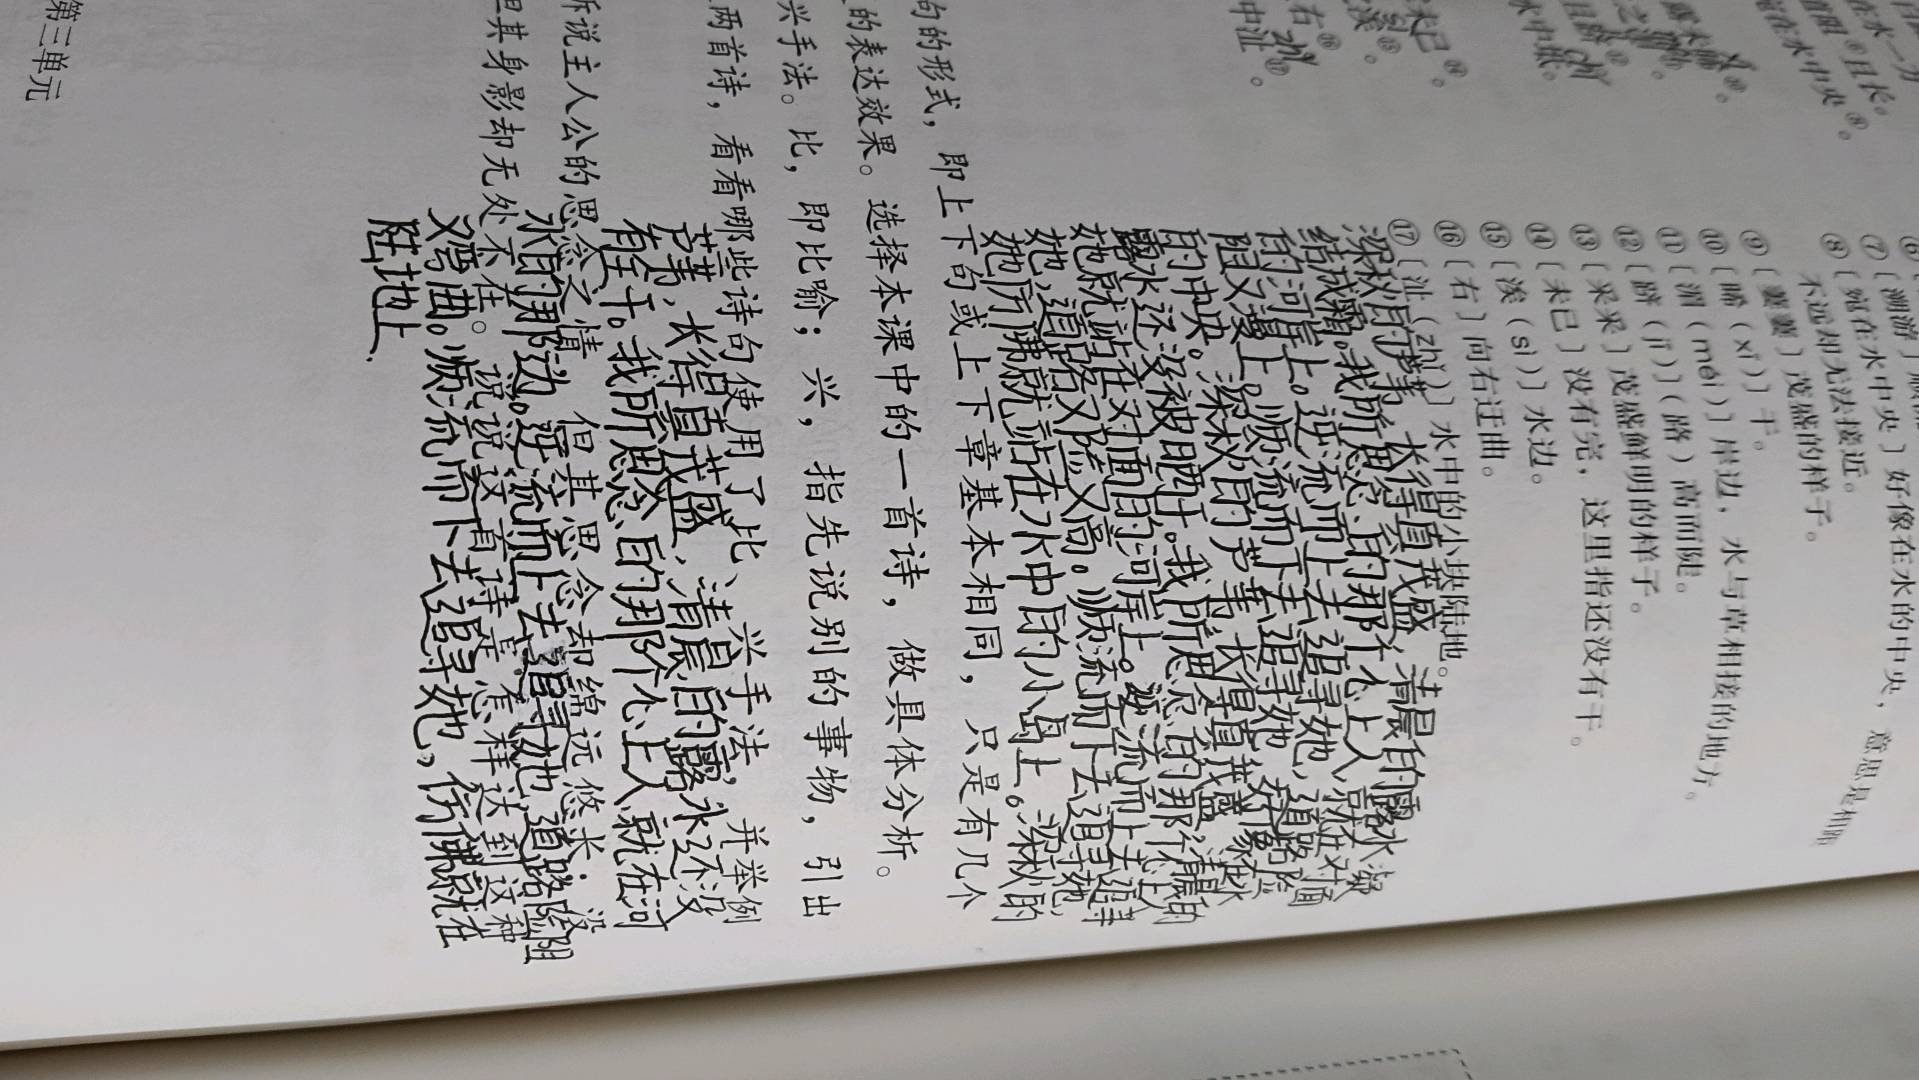 在水一方
⑥且长。
在水中央⑧。
⑦〔溯游〕
⑧〔宛在水中央〕好像在水的中央，意思是相距
不远却无法接近。
⑨〔萋萋〕茂盛的样子。
⑩〔晞（xī）〕干。
⑪〔湄（méi）〕岸边，水与草相接的地方。
⑫〔跻（jī）〕（路）高而陡。
⑬〔采采〕茂盛鲜明的样子。
⑭〔未已〕没有完，这里指还没有干。
⑮〔涘（sì）〕水边。
⑯〔右〕向右迂曲。
⑰〔沚（zhǐ）〕水中的小块陆地。
深秋的芦苇，长得真茂盛，清晨的露水凝
结成霜。我所思念的那个心上人就在对面
的河岸上。逆流而上去追寻她，道路险
阻又漫上。顺流而下去追寻她，好像在水
的中央。深秋的芦苇，长得真茂盛，清晨的
露水还没被晒干。我所思念的那个心上人
她就站在对面的河岸上。逆流而上去追寻
她，道路又险又高。顺流而下去追寻她，
她仿佛就站在水中的小岛上。深秋的
句的形式，即上下句或上下章基本相同，只是有几个
的表达效果。选择本课中的一首诗，做具体分析。
兴手法。比，即比喻；兴，指先说别的事物，引出
两首诗，看看哪些诗句使用了比、兴手法，并举例
芦苇，长得真茂盛，清晨的露水还没
有干。我所思念的那个心上人就在河
诉说主人公的思念之情，但其思念却绵远悠长；没
水的那边。逆流而上去追寻她，道路险阻
但其身影却无处不在。说说这首诗是怎样达到这种
又弯曲。顺流而下去追寻她，仿佛就在
陆地上
第三单元